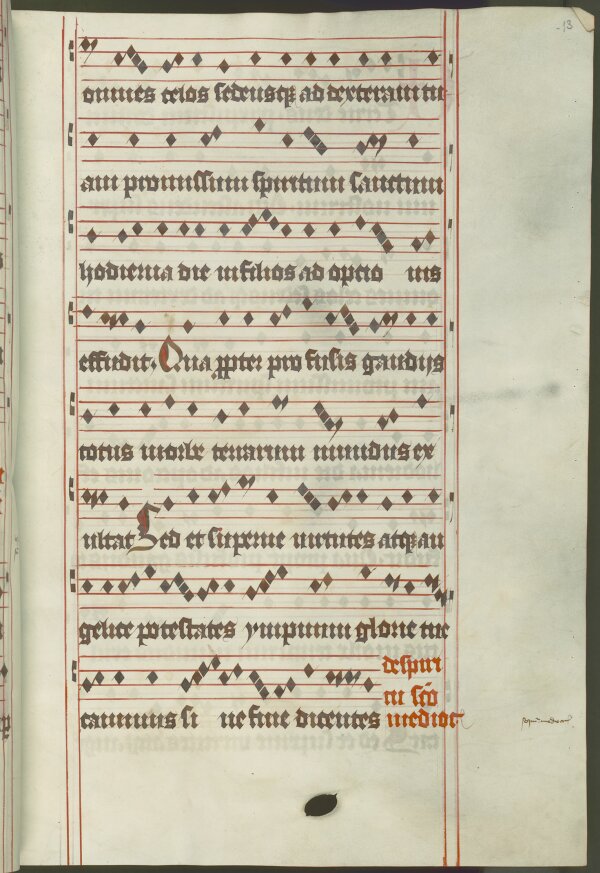 13
omnes celos sedensq; ad dexteram tu
am promissum spiritum sanctum
hodierna die in filios adoptio nis
effudit. Qua ppter profusis gaudijs
totus in orbe terrarum mundus ex
ultat Sed et superne virtutes atq; an
gelice potestates ympnum glorie tue
canunt si ne fine dicentes
de spiri
tu sco
medioc